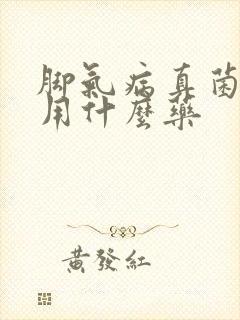 脚氣病真菌
用什麼藥
黃發紅